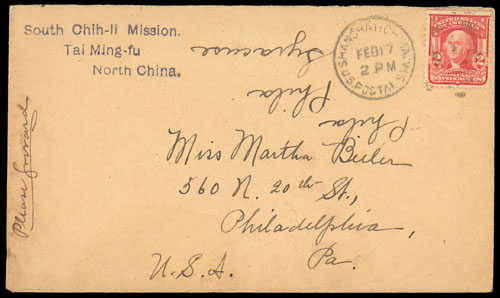 South Chih-li Mission.
Tai Ming-fu
North China.
SHANGHAI, CHINA
FEB 17
2 PM
U.S. POSTAL
Syracuse
Phila
Phila
Please forward
Miss Martha Bieler
560 N. 20th St.,
Philadelphia,
Pa.
U.S.A.